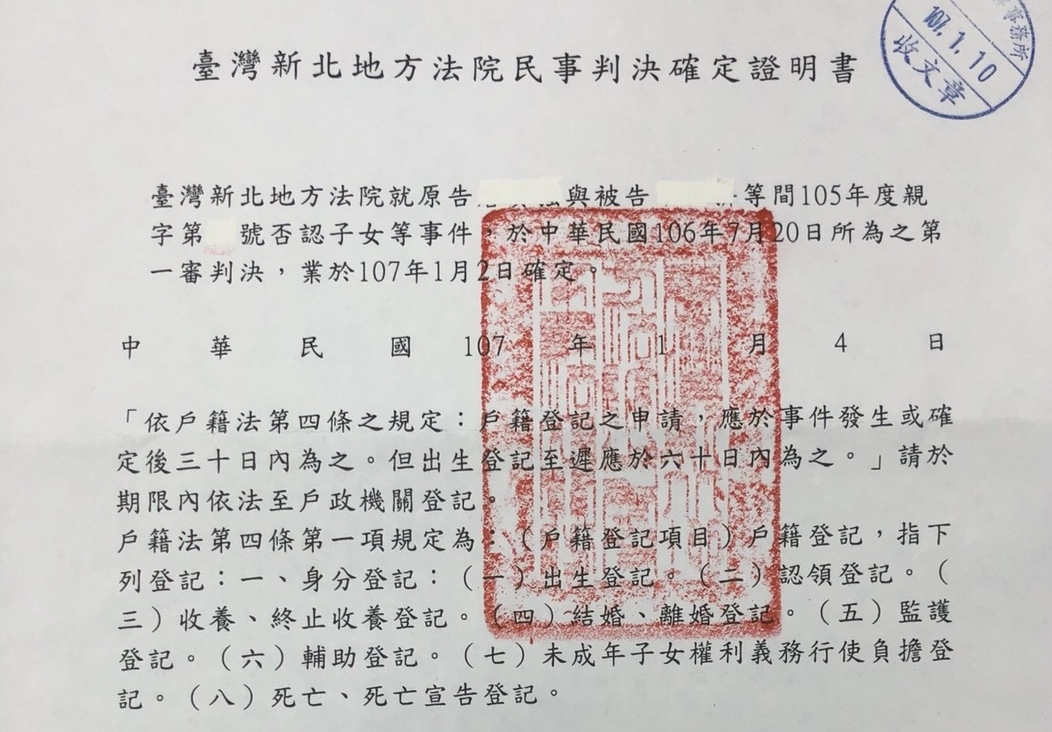 臺灣新北地方法院民事判決確定證明書
事務所
107.1.10
收文章
臺灣新北地方法院就原告 與被告 等間105年度親
字第 號否認子女等事件，於中華民國106年7月20日所為之第
一審判決，業於107年1月2日確定。
中 華 民 國 107 年 1 月 4 日
「依戶籍法第四條之規定：戶籍登記之申請，應於事件發生或確
定後三十日內為之。但出生登記至遲應於六十日內為之。」請於
期限內依法至戶政機關登記。
戶籍法第四條第一項規定為：（戶籍登記項目）戶籍登記，指下
列登記：一、身分登記：（一）出生登記。（二）認領登記。（
三）收養、終止收養登記。（四）結婚、離婚登記。（五）監護
登記。（六）輔助登記。（七）未成年子女權利義務行使負擔登
記。（八）死亡、死亡宣告登記。